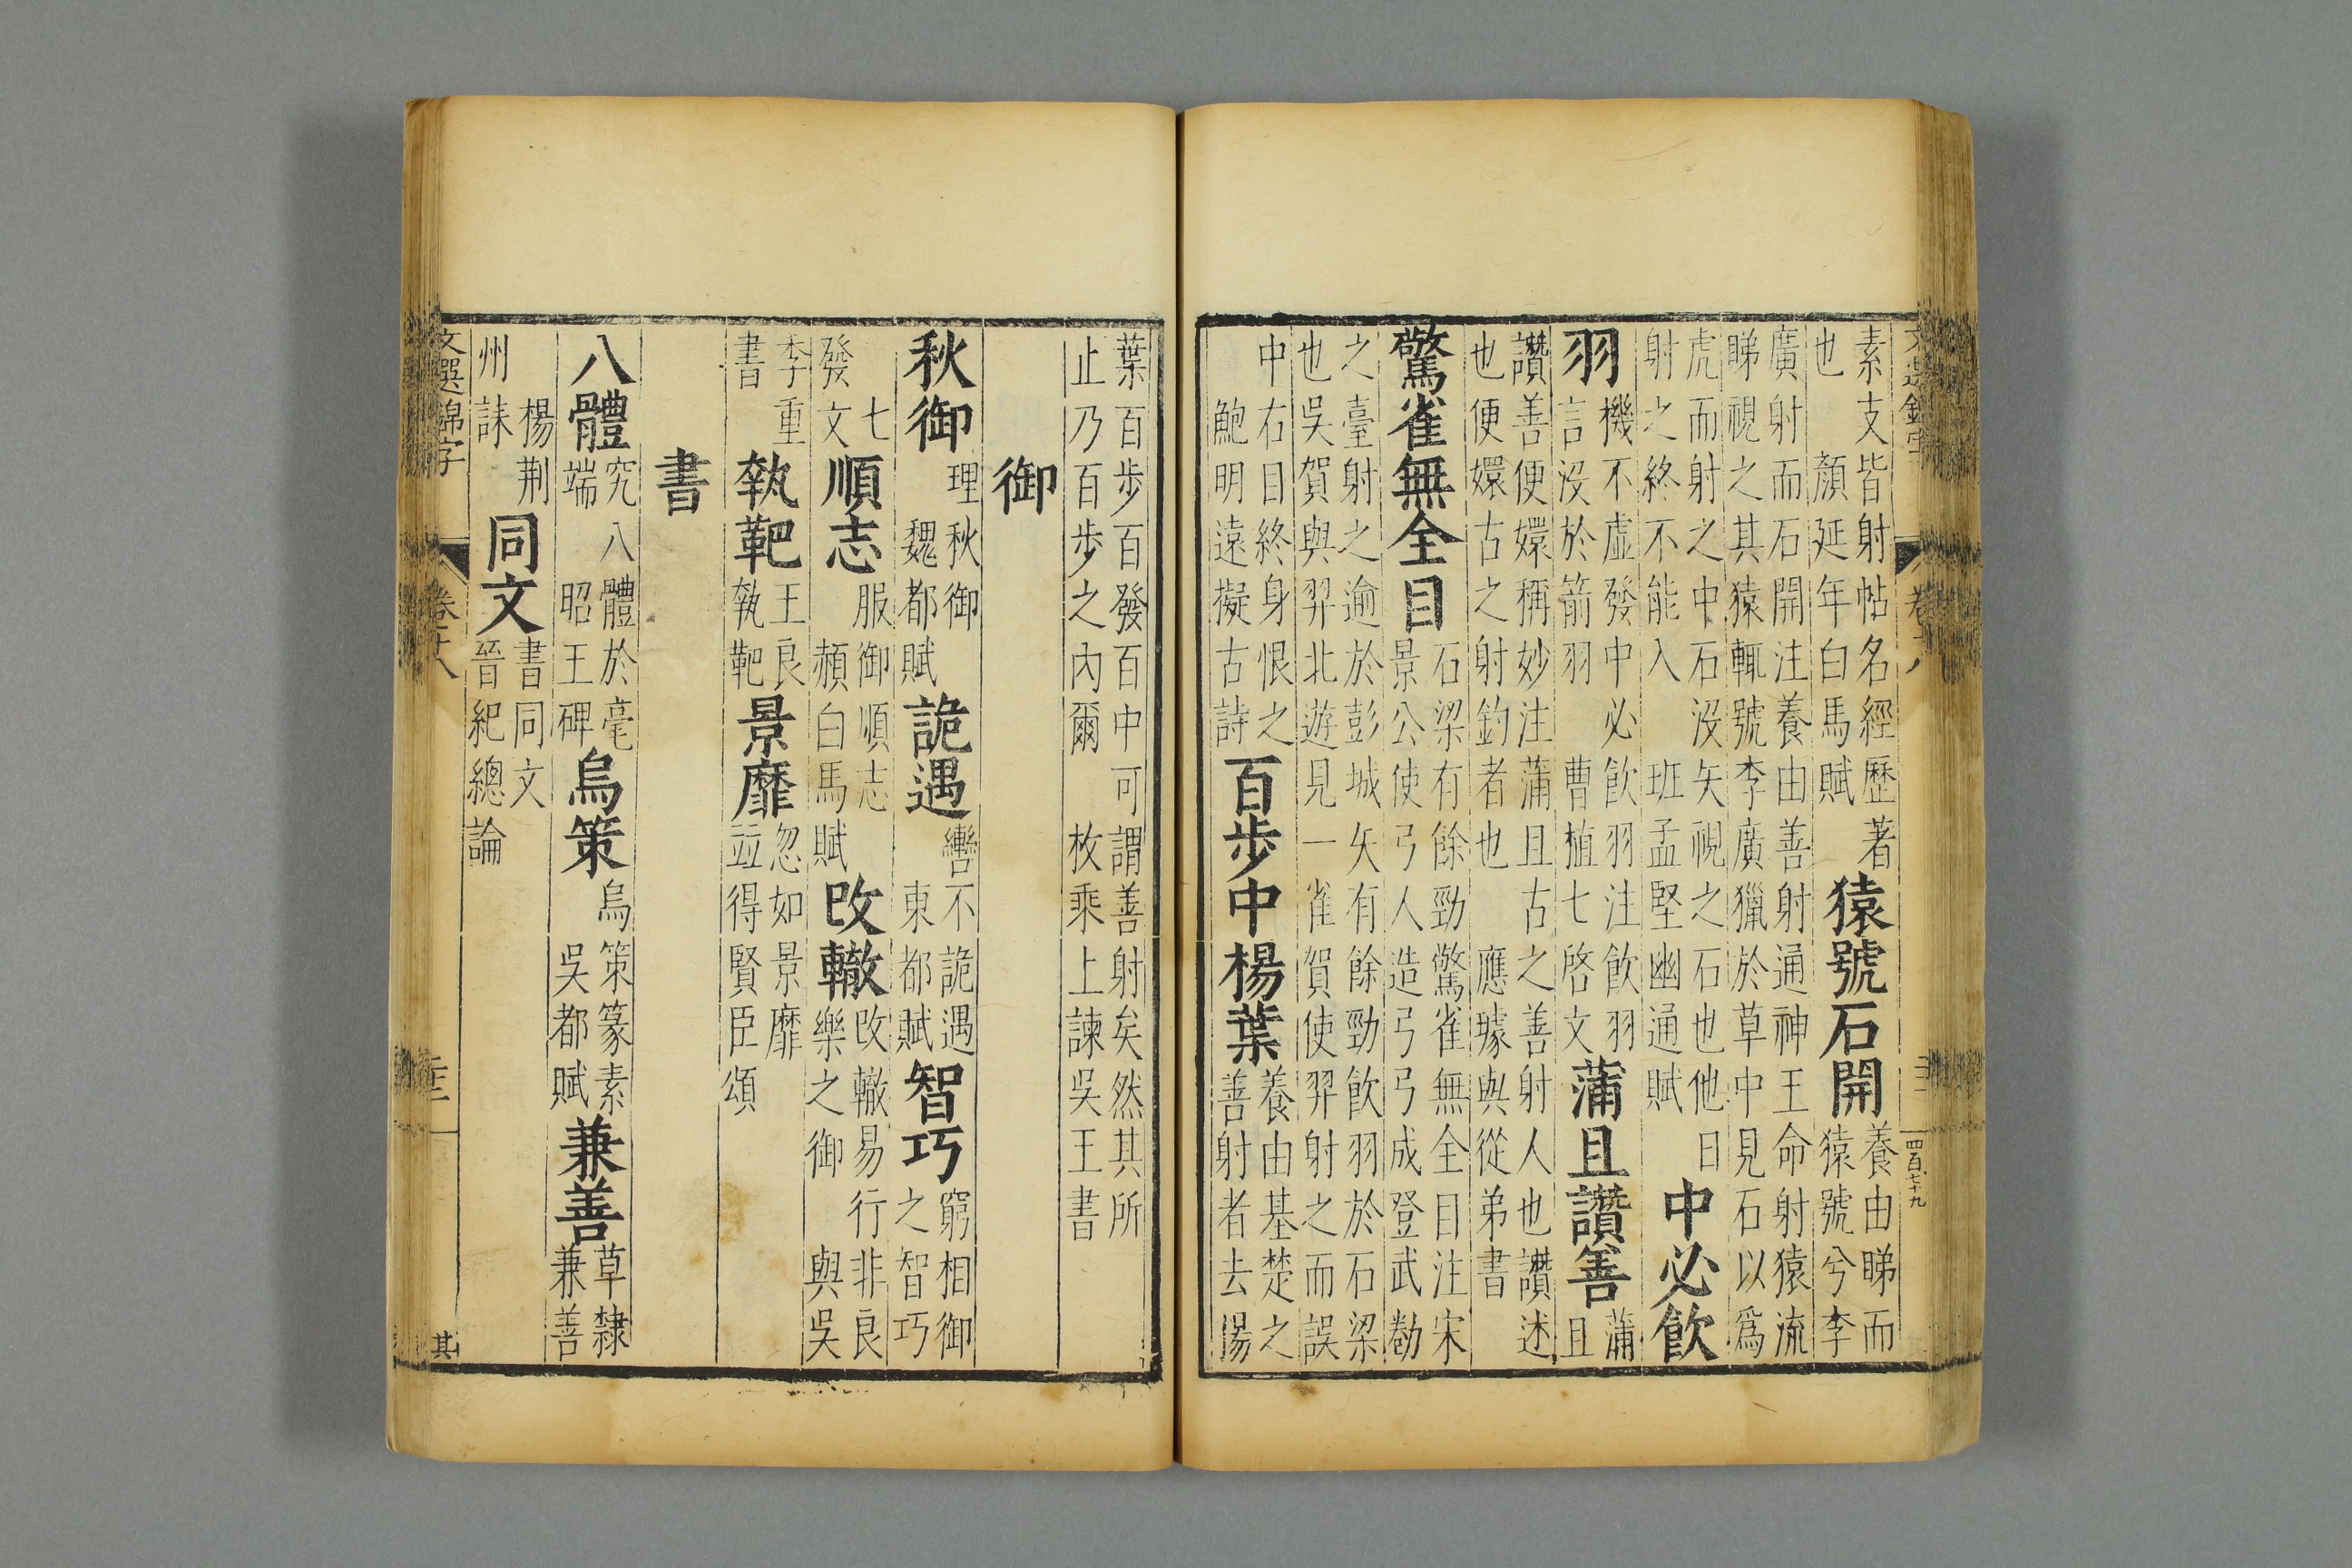 素支皆射帖名經歷著也 顏延年白馬賦 猿號石開 養由睇而猿號兮李
廣射而石開注養由善射通神王命射猿流睇視之其猿輒號李廣獵於草中見石以爲
虎而射之中石沒矢視之石也他日射之終不能入 班孟堅幽通賦 中必飲
羽 機不虛發中必飲羽注飲羽言沒於箭羽 曹植七啓文 蒲且讚善 蒲且
讚善便嬛稱妙注蒲且古之善射人也讚述也便嬛古之射釣者也 應璩與從弟書
驚雀無全目 石梁有餘勁驚雀無全目注宋景公使弓人造弓弓成登武勌
之臺射之逾於彭城矢有餘勁飲羽於石梁也吳賀與羿北遊見一雀賀使羿射之而誤
中右目終身恨之 鮑明遠擬古詩 百步中楊葉 養由基楚之善射者去楊
四百七十九
葉百步百發百中可謂善射矣然其所止乃百步之內爾 枚乘上諫吳王書
御
秋御 理秋御 魏都賦 詭遇 轡不詭遇 東都賦 智巧 窮相御之智巧
七發文 順志 服御順志 頳白馬賦 改轍 改轍易行非良樂之御 與吳
李重書 執靶 王良執靶 景靡 忽如景靡 並得賢臣頌
書
八體 究八體於毫端 昭王碑 烏策 烏策篆素 吳都賦 兼善 草隸兼善
楊荆州誄 同文 書同文 晉紀總論
文選錦字 卷十八 其